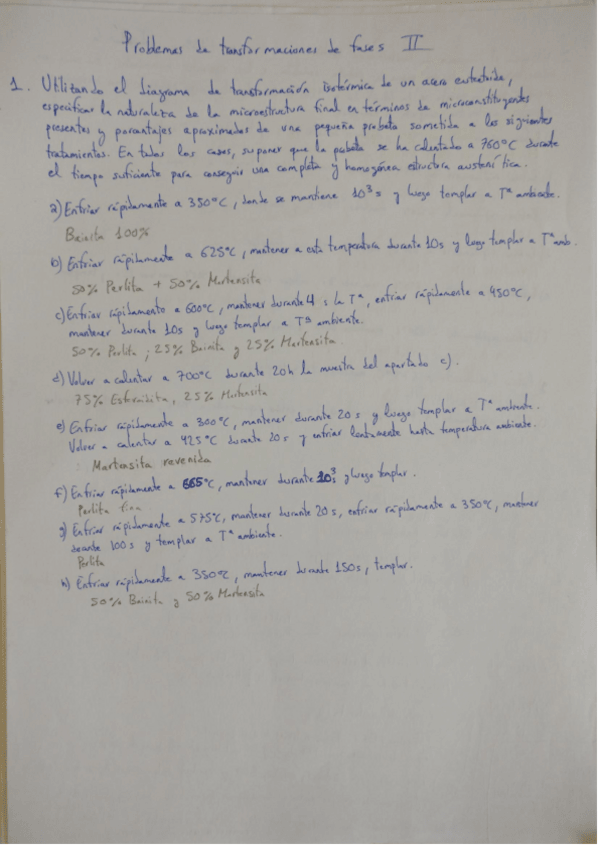 Problemas de transformaciones de fases II
1. Utilizando el diagrama de transformación isotérmica de un acero eutectoide,
especificar la naturaleza de la microestructura final en términos de microconstituyentes
presentes y porcentajes aproximados de una pequeña probeta sometida a los siguientes
tratamientos. En todos los casos, suponer que la probeta se ha calentado a 760°C durante
el tiempo suficiente para conseguir una completa y homogénea estructura austenítica.
a) Enfriar rápidamente a 350°C, donde se mantiene 10³ s y luego templar a Tª ambiente.
Bainita 100%
b) Enfriar rápidamente a 625°C, mantener a esta temperatura durante 10s y luego templar a Tª amb.
50% Perlita + 50% Martensita
c) Enfriar rápidamente a 600°C, mantener durante 4 s la Tª, enfriar rápidamente a 450°C,
mantener durante 10s y luego templar a Tª ambiente.
50% Perlita; 25% Bainita y 25% Martensita
d) Volver a calentar a 700°C durante 20h la muestra del apartado c).
75% Esferoidita, 25% Martensita
e) Enfriar rápidamente a 300°C, mantener durante 20 s y luego templar a Tª ambiente.
Volver a calentar a 425°C durante 20 s y enfriar lentamente hasta temperatura ambiente.
Martensita revenida
f) Enfriar rápidamente a 665°C, mantener durante 10³ s y luego templar.
Perlita fina
g) Enfriar rápidamente a 575°C, mantener durante 20 s, enfriar rápidamente a 350°C, mantener
durante 100s y templar a Tª ambiente.
Perlita
h) Enfriar rápidamente a 350°C, mantener durante 150s, templar.
50% Bainita y 50% Martensita